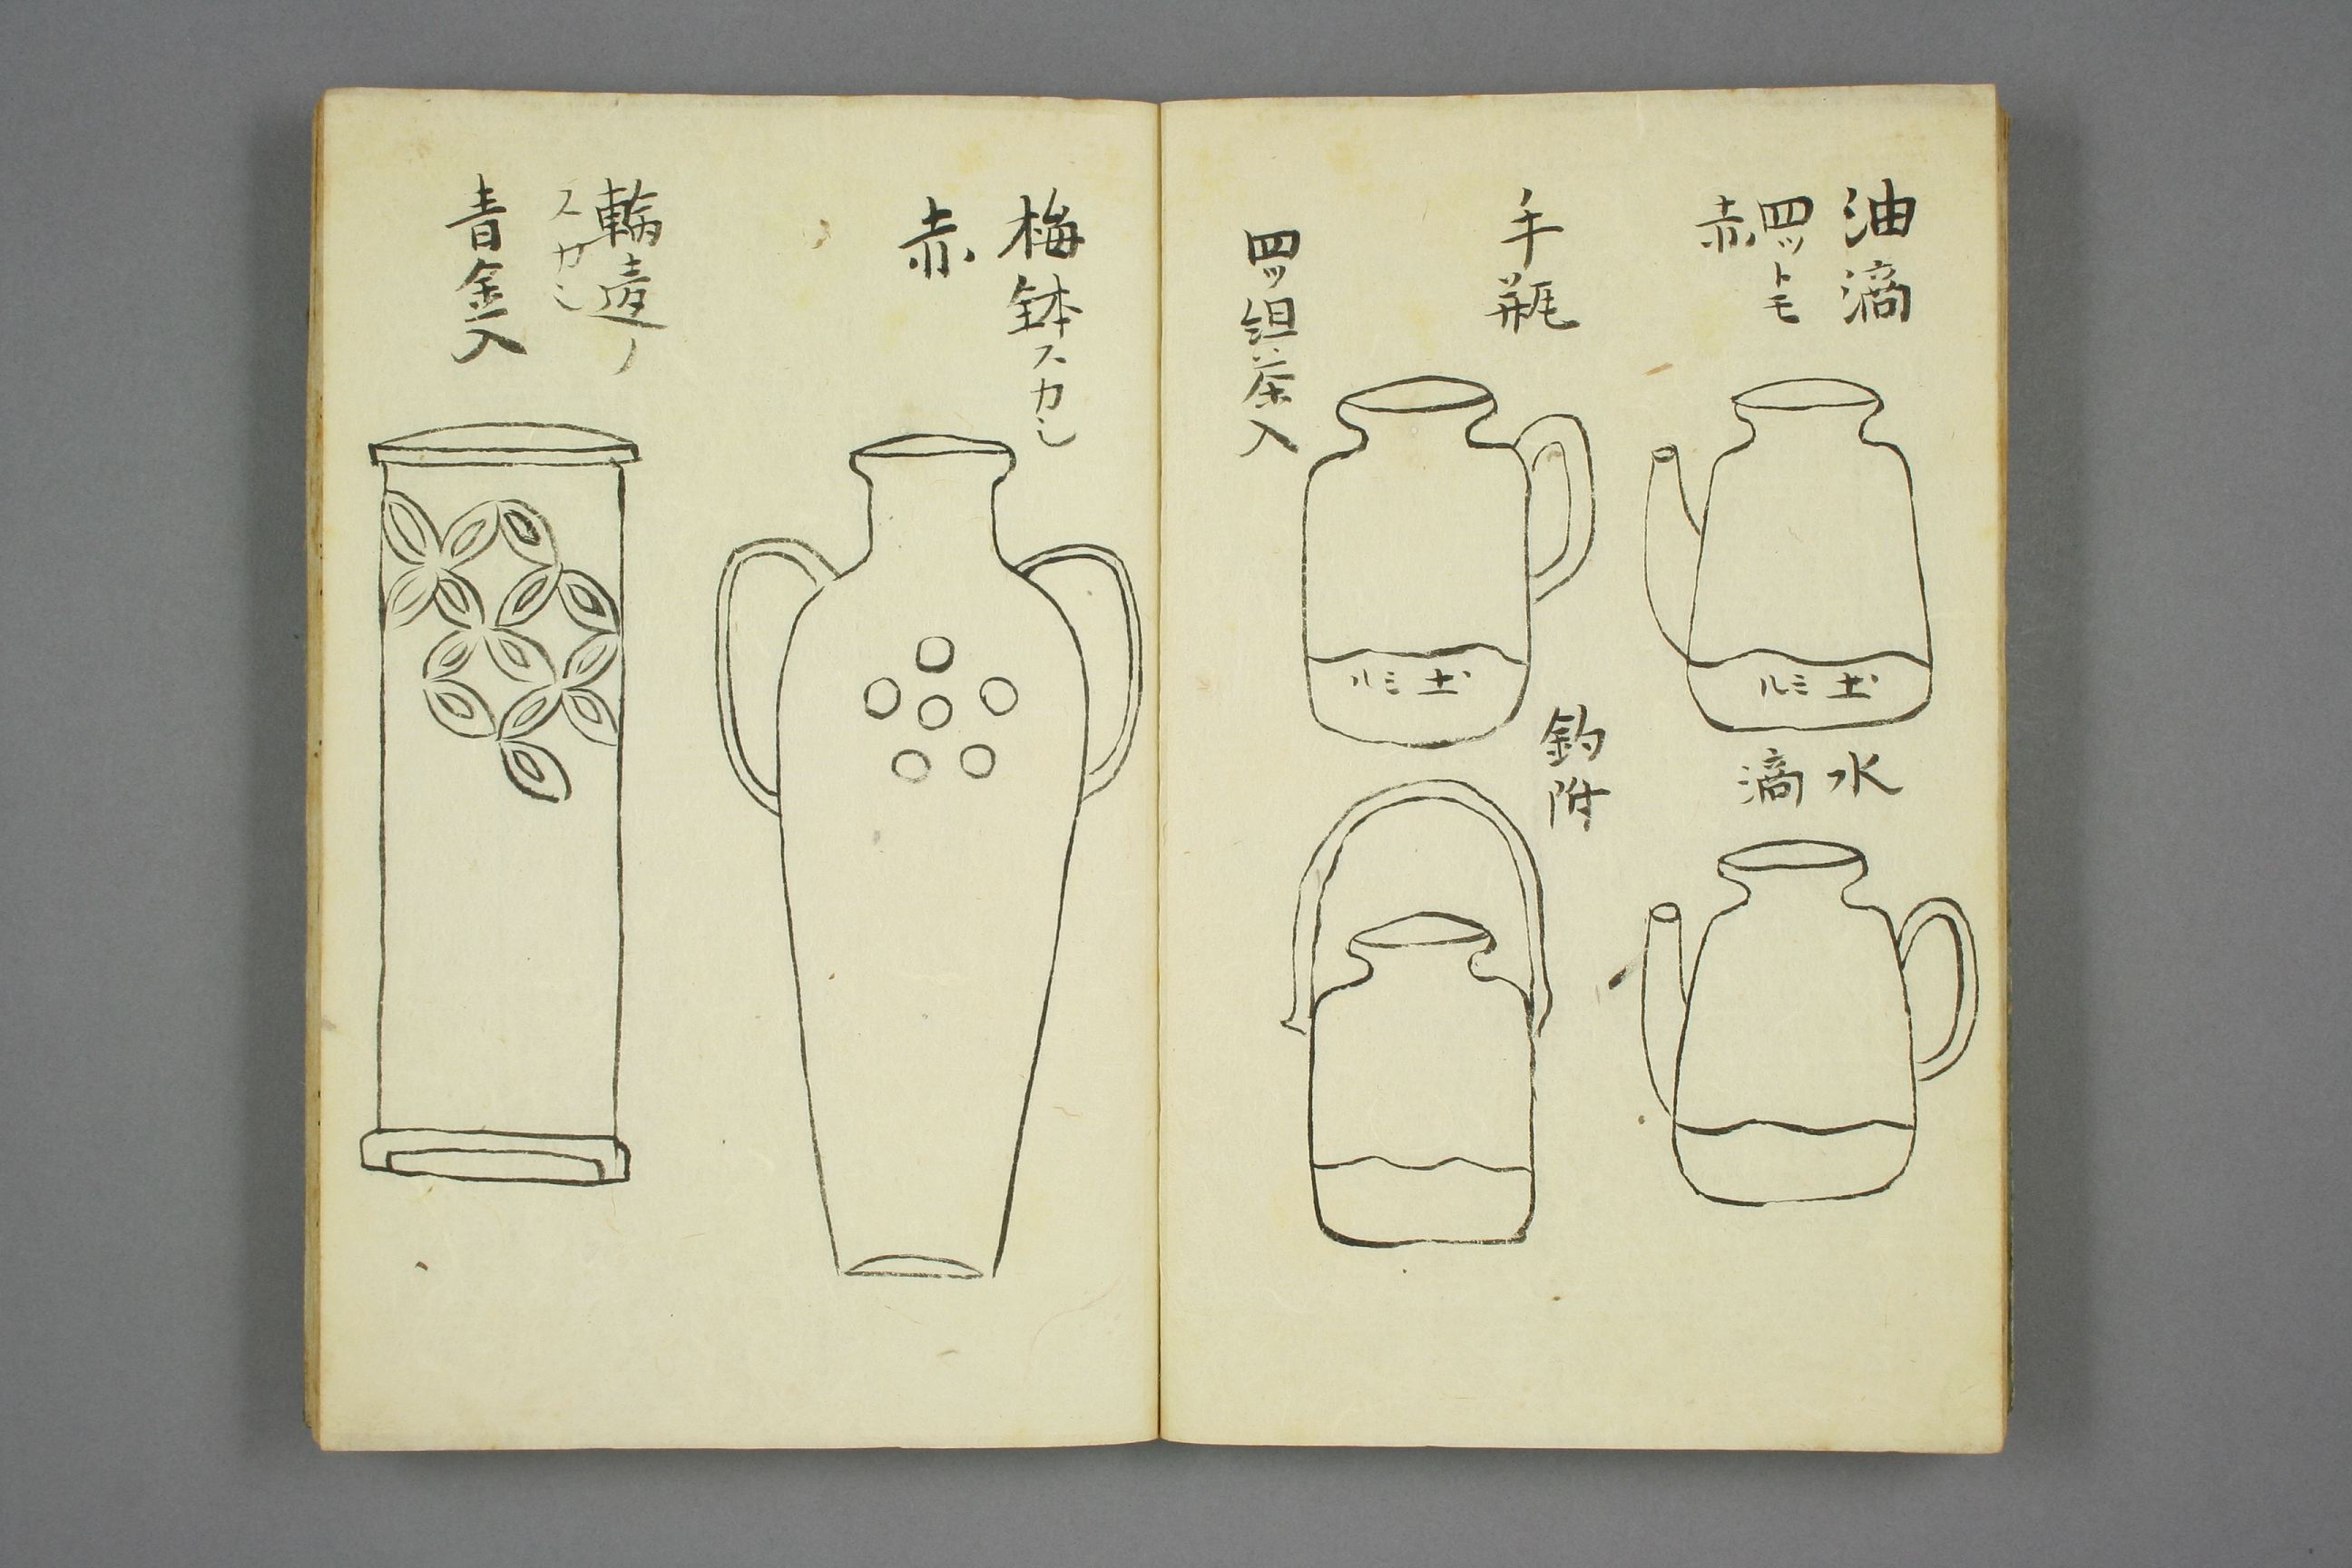 油滴
四ットモ
赤
土ミル
水滴
手瓶
土ミル
釣附
四ッ組茶入
梅鉢スカし
赤
輪違ノ
スカし
青金入